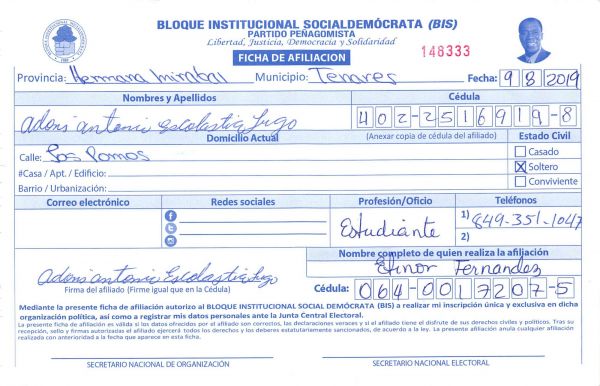 BLOQUE INSTITUCIONAL SOCIALDEMÓCRATA (BIS)
PARTIDO PEÑAGOMISTA
Libertad, Justicia, Democracia y Solidaridad
FICHA DE AFILIACION
148333
Provincia: Hermana mirabal Municipio: Tenares Fecha: 9 8 2019
Nombres y Apellidos Cédula
Adoni antonio Escolastica Lugo 402-2516919-8
Domicilio Actual (Anexar copia de cédula del afiliado) Estado Civil
Calle: Los Pomos Casado
#Casa / Apt. / Edificio: X Soltero
Barrio / Urbanización: Conviviente
Correo electrónico Redes sociales Profesión/Oficio Teléfonos
Estudiante 1) 849-351-1047
2)
Nombre completo de quien realiza la afiliación
Adoni antonio Escolastica Lugo Elinor Fernandez
Firma del afiliado (Firme igual que en la Cédula) Cédula: 064-0017207-5
Mediante la presente ficha de afiliación autorizo al BLOQUE INSTITUCIONAL SOCIAL DEMÓCRATA (BIS) a realizar mi inscripción única y exclusiva en dicha
organización política, así como a registrar mis datos personales ante la Junta Central Electoral.
La presente ficha de afiliación es válida si los datos ofrecidos por el afiliado son correctos, las declaraciones veraces y si el afiliado tiene el disfrute de sus derechos civiles y políticos. Tras su
recepción, sello y firmas autorizadas el afiliado ejercerá todos los derechos y los deberes estatutariamente sancionados, de acuerdo a la ley. La presente afiliación anula cualquier afiliación
realizada con anterioridad a la fecha que aparece en esta ficha.
SECRETARIO NACIONAL DE ORGANIZACIÓN SECRETARIO NACIONAL ELECTORAL